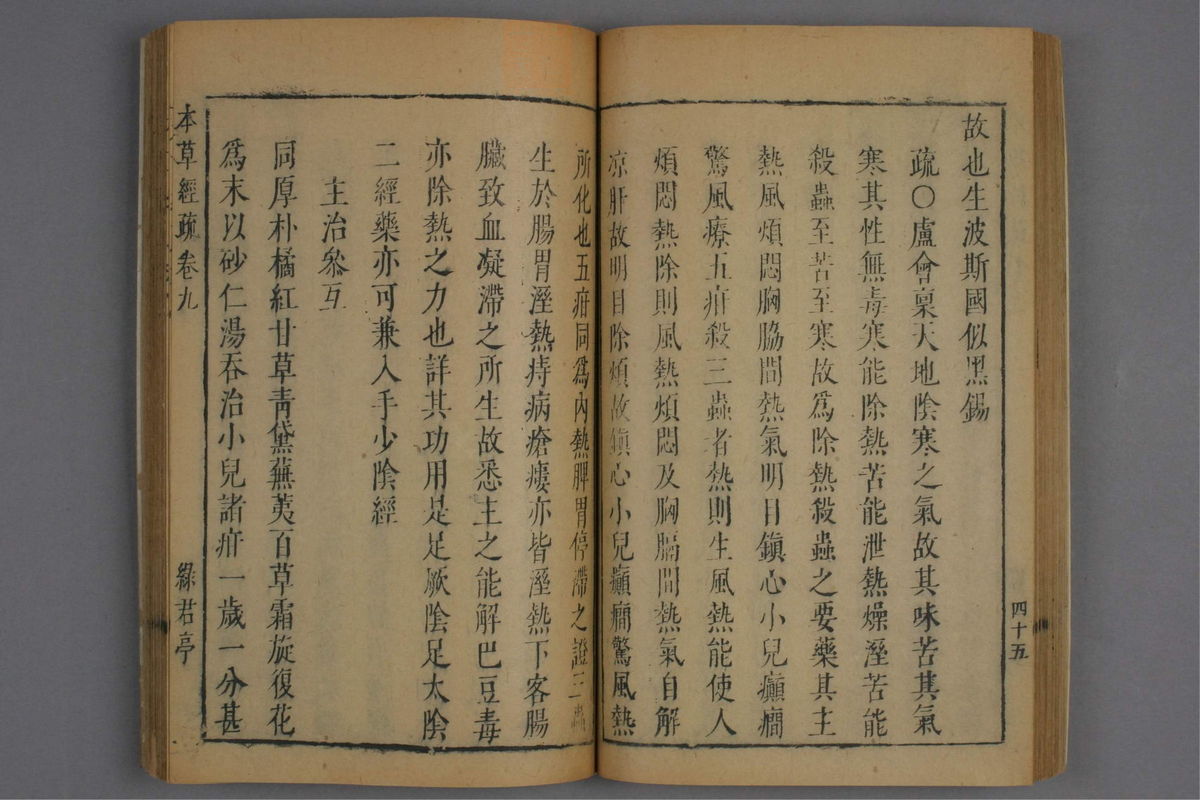 故也生波斯國似黑錫
疏〇盧會稟天地陰寒之氣故其味苦其氣
寒其性無毒寒能除熱苦能泄熱燥溼苦能
殺蟲至苦至寒故爲除熱殺蟲之要藥其主
熱風煩悶胸脇間熱氣明目鎮心小兒癲癇
驚風療五疳殺三蟲者熱則生風熱能使人
煩悶熱除則風熱煩悶及胸膈間熱氣自解
凉肝故明目除煩故鎮心小兒癲癇驚風熱
四十五
所化也五疳同爲內熱脾胃停滯之證三蟲
生於腸胃溼熱痔病瘡瘻亦皆溼熱下客腸
臟致血凝滯之所生故悉主之能解巴豆毒
亦除熱之力也詳其功用是足厥陰足太陰
二經藥亦可兼入手少陰經
主治叅互
同厚朴橘紅甘草靑黛蕪荑百草霜旋復花
爲末以砂仁湯吞治小兒諸疳一歲一分甚
本草經疏卷九
綠君亭